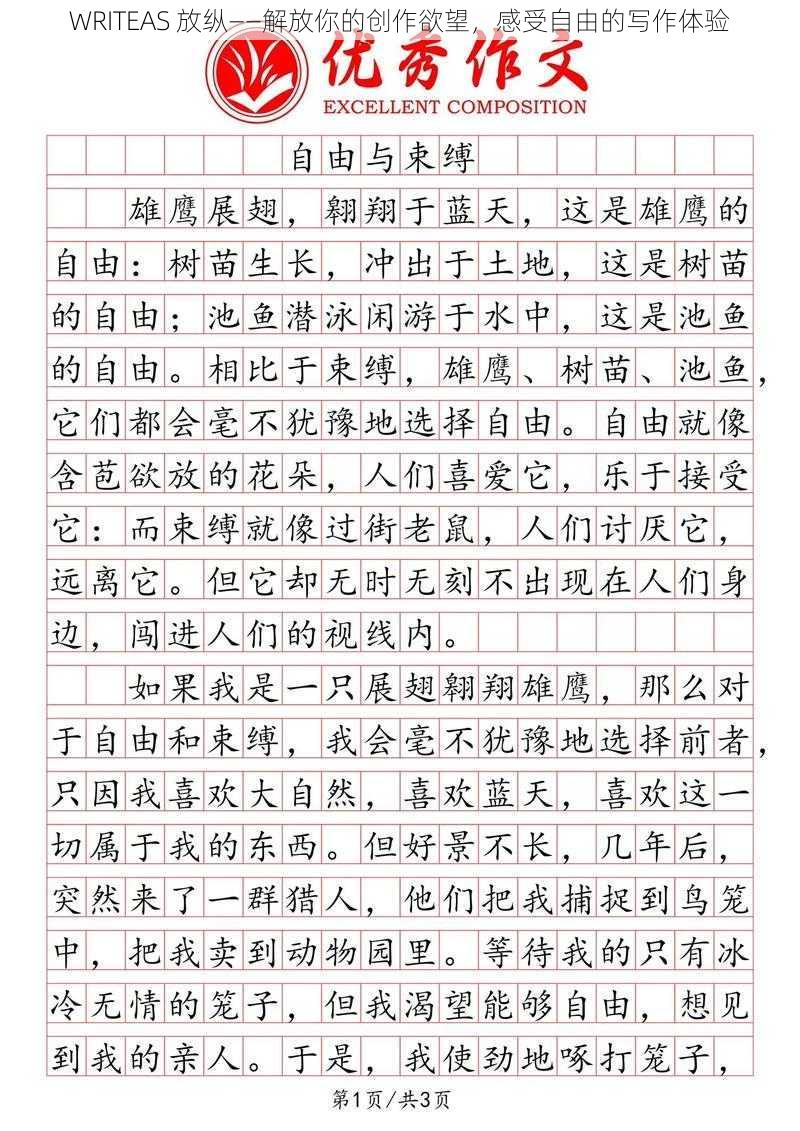 WRITEAS 放纵——解放你的创作欲望，感受自由的写作体验
优秀作文
EXCELLENT COMPOSITION
自由与束缚
雄鹰展翅，翱翔于蓝天，这是雄鹰的
自由：树苗生长，冲出于土地，这是树苗
的自由；池鱼潜泳闲游于水中，这是池鱼
的自由。相比于束缚，雄鹰、树苗、池鱼，
它们都会毫不犹豫地选择自由。自由就像
含苞欲放的花朵，人们喜爱它，乐于接受
它：而束缚就像过街老鼠，人们讨厌它，
远离它。但它却无时无刻不出现在人们身
边，闯进人们的视线内。
如果我是一只展翅翱翔雄鹰，那么对
于自由和束缚，我会毫不犹豫地选择前者，
只因我喜欢大自然，喜欢蓝天，喜欢这一
切属于我的东西。但好景不长，几年后，
突然来了一群猎人，他们把我捕捉到鸟笼
中，把我卖到动物园里。等待我的只有冰
冷无情的笼子，但我渴望能够自由，想见
到我的亲人。于是，我使劲地啄打笼子，
第1页/共3页